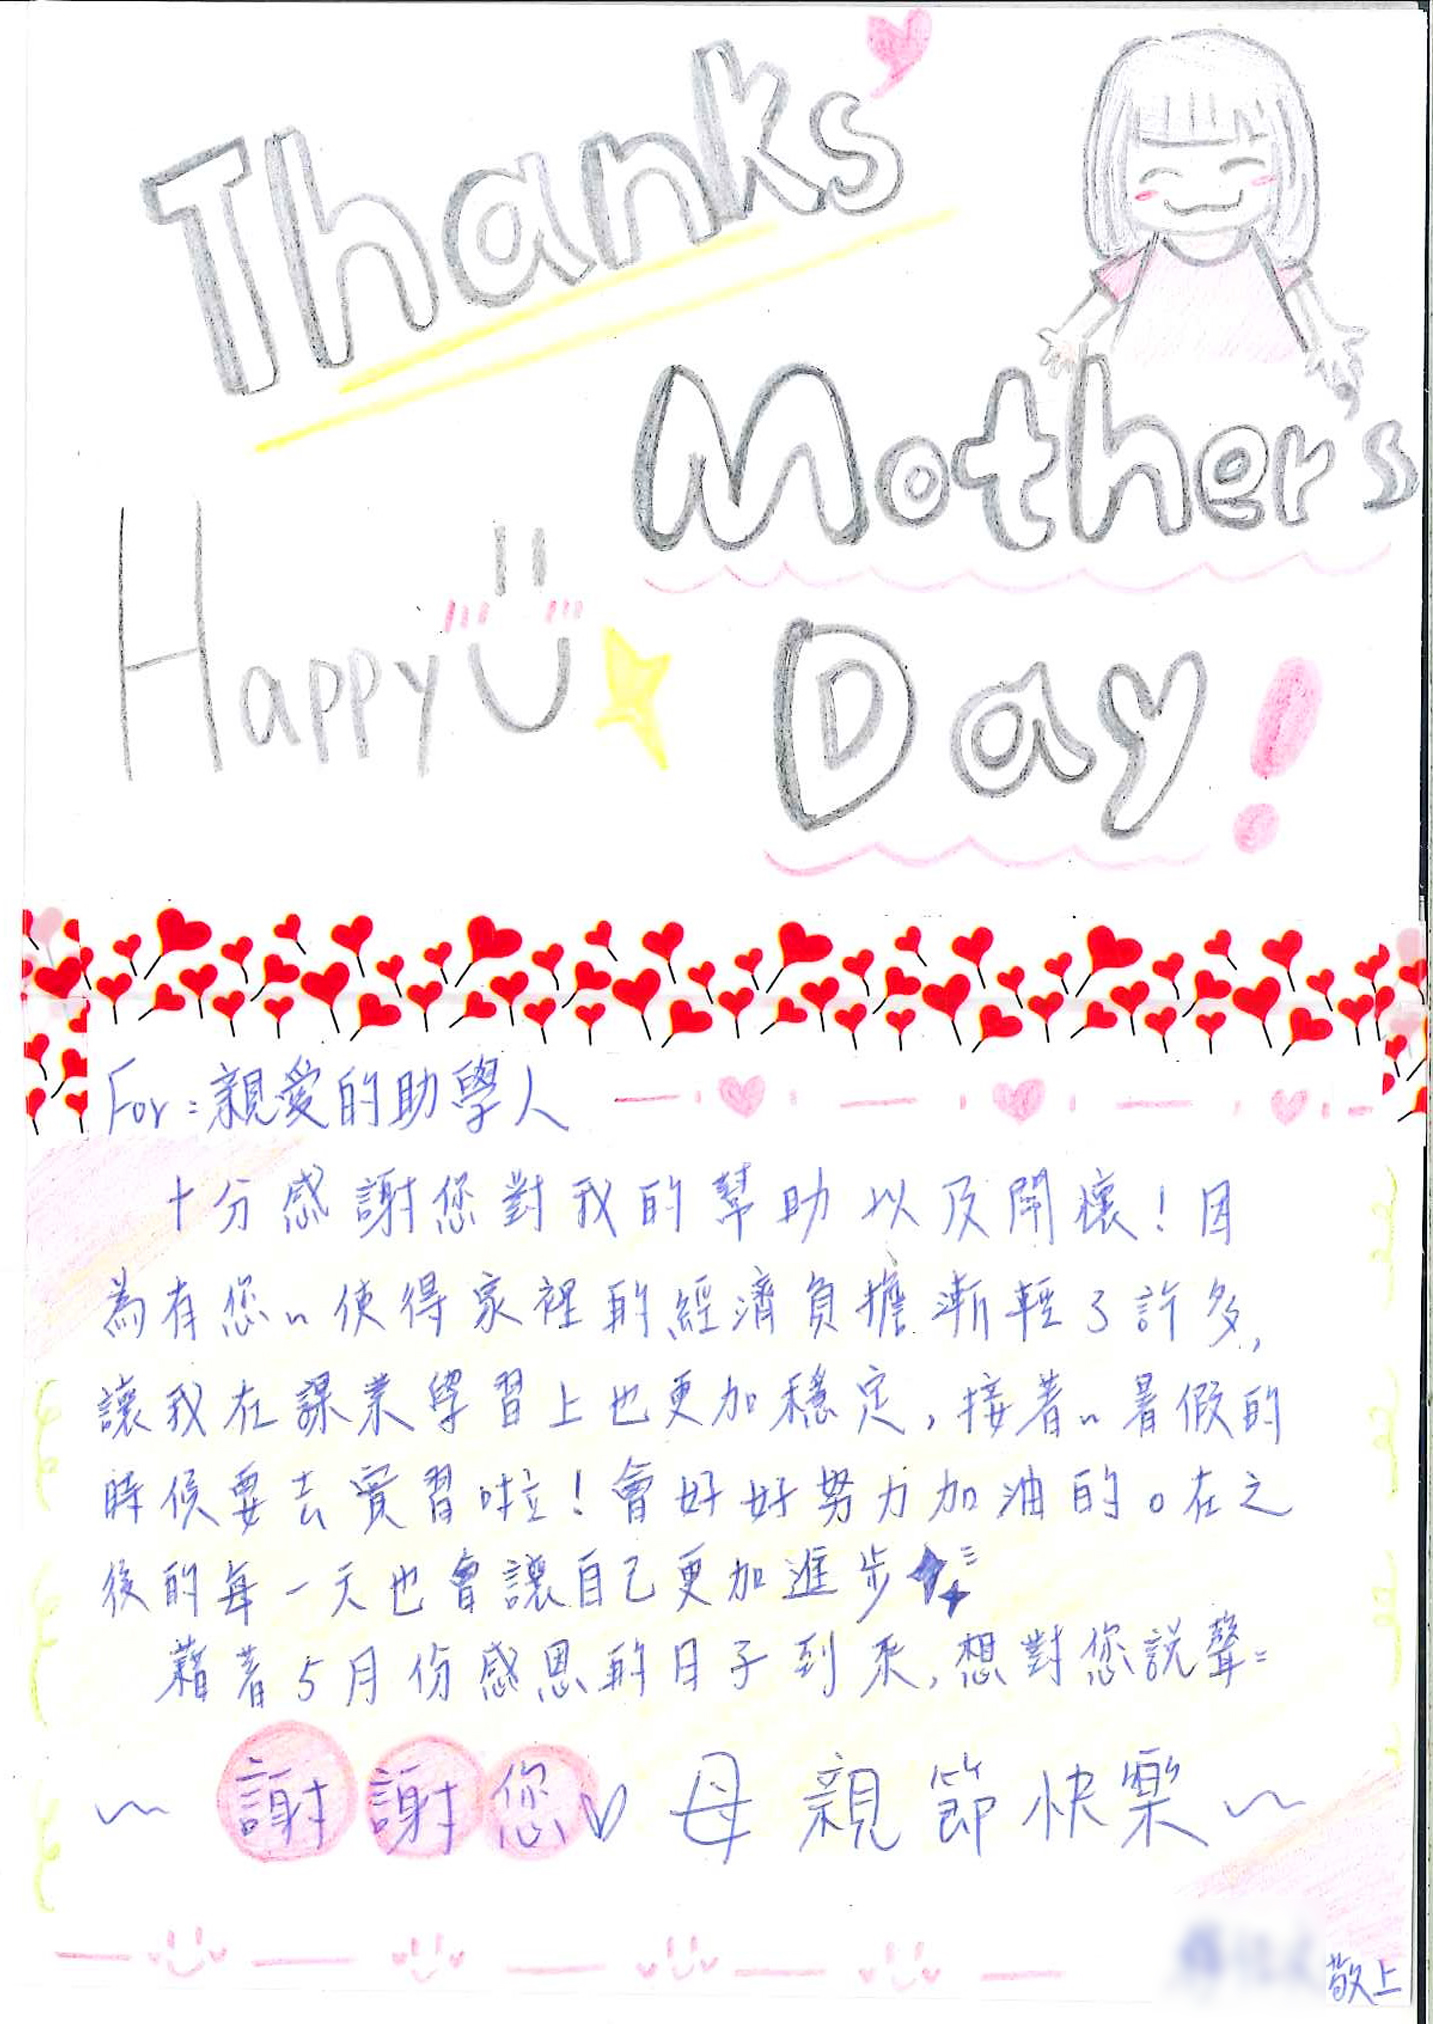 Thanks
Mother's
Happy
Day!
For:親愛的助學人
十分感謝您對我的幫助以及開懷!因
為有您~使得家裡的經濟負擔漸輕了許多,
讓我在課業學習上也更加穩定,接著~暑假的
時候要去實習啦!會好好努力加油的。在之
後的每一天也會讓自己更加進步
藉著5月份感恩的日子到來,想對您說聲:
~謝謝您♡母親節快樂~
敬上